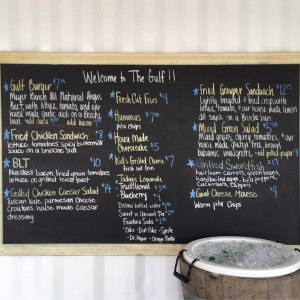 Welcome to The Gulf!!
Gulf Burger $7.50
Meyer Ranch All Natural Angus
Beef, with lettuce, tomato, and our
house made garlic aioli on a Brioche
bun. add bacon
Fried Chicken Sandwich $8
lettuce, tomatoes, spicy buttermilk
sauce on a brioche bun
BLT $10
Nueske's bacon, fried green tomatoes,
lettuce on grilled texas toast
Grilled Chicken Caesar Salad
Tuscan kale, parmesan cheese
Croutons, house made Caesar
dressing
Fresh Cut Fries $4
Hummus
pita chips
House Made
Cheesecake $5
Kid's Grilled Cheese
Fresh cut fries
Today's Lemonade
Traditional
Blueberry $4
Dasani bottled water
Sweet or Unsweet Tea
Fountain Soda
- Coke - Diet Coke - Sprite
- Dr. Pepper -
Fried Grouper Sandwich $12
Lightly breaded & fried crisp with
lettuce, tomato, & our house made lemon
dill sauce on a Brioche bun
Mixed Green Salad $5.50
tomatoes, cucumbers, carrots,
gluten free, brown
balsamic vinaigrette add grilled grouper
Grilled Swordfish $17
heirloom carrots, green beans,
Cucumbers, & peppers
Goat Cheese Mousse
Warm pita chips